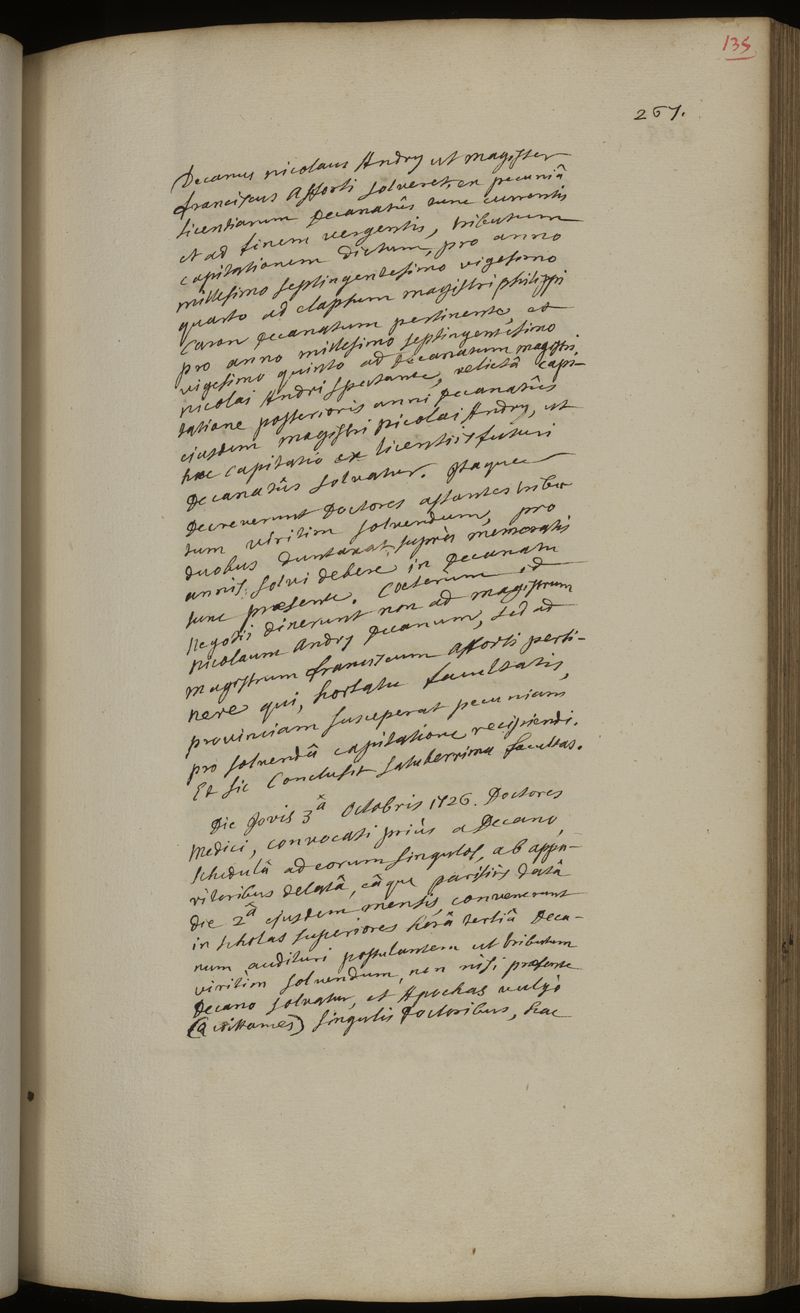 135
267.
Decanus nicolaus Andry ut magister
franciscus Afforti solveret, ex pecuniâ
licentiarum Decanatûs tunc currentis
et ad finem vergentis, tributum
capitationem dictum, pro anno
millesimo septingentesimo vigesimo
quarto ad elapsum magistri philippi
Caron Decanatum pertinente, et
pro anno millesimo septingentesimo
vigesimo quinto ad Decanatum magistri
nicolai Andri spectante, relictâ capi-
tatione posterioris anni Decanatûs
ejusdem magistri nicolai Andry, ut
hæc capitatio ex licentiis futuri
Decanatûs solvatur. Itaque
Decreverunt Doctores astantes tribu
tum viritim solvendum, pro
duobus duntaxat suprà memoratis
annis, solvi debere in Decanatu
tunc præsente. Cæterum id
negotii dixerunt non ad magistrum
nicolaum Andry Decanum, sed ad
magistrum franciscum Afforti perti-
nere qui, hortatu facultatis,
provinciam susceperat pecuniam
pro solvendâ capitatione recipiendi.
Et sic Conclusit saluberrima facultas.
Die Jovis 3â Octobris 1726. Doctores
Medici, convocati priùs a Decano,
schedulâ ad eorum singulos, ab appa-
ritoribus delatâ, eâque parisiis datâ
die 2â ejusdem mensis, convenerunt
in scholas superiores horâ tertiâ Deca-
num audituri postulantem ut tributum
viritim solvendum, non nisi præsente
Decano solvatur, et Apochas vulgò
(Quittances) singulis Doctoribus, hac